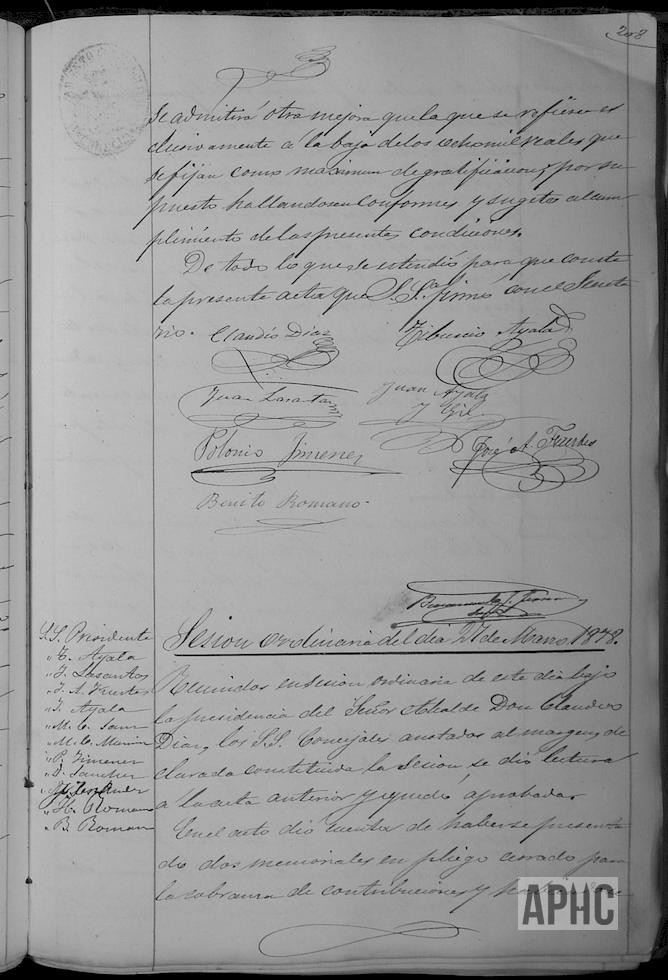 208
se admitirá otra mejora que la que se refiera es
clusivamente á la baja de los ocho mil reales que
se fijan como maximun de gratificacion, y por su
puesto hallandose conformes y sugetos al cum
plimiento de las presentes condiciones.
De todo lo que se estendió para que conste
la presente acta que S.S. firmó con el Secreta
rio.
Claudio Diaz
Tiburcio Ayala
Juan Lasanta
Juan Ayala
y Gil
Polonio Jimenez
José A. Fuertes
Benito Romano
Sesion ordinaria del dia 21 de Marzo 1878.
S.S. Presidente
" T. Ayala
" J. Lasantas
" J. A. Fuertes
" J. Ayala
" M. C.
" M. C.
" P. Jimenez
" D. Sanchez
" Romano
" B. Roman
Reunidos en sesion ordinaria de este dia bajo
la presidencia del Señor Alcalde Don Claudio
Diaz, los S.S. Concejales anotados al margen, de
clarada constituida la sesion se dió lectura
á la acta anterior y quedó aprobada.
En el acto dió cuenta de haberse presenta
do dos memoriales en pliego cerrado para
la cobranza de contribuciones y
APHC